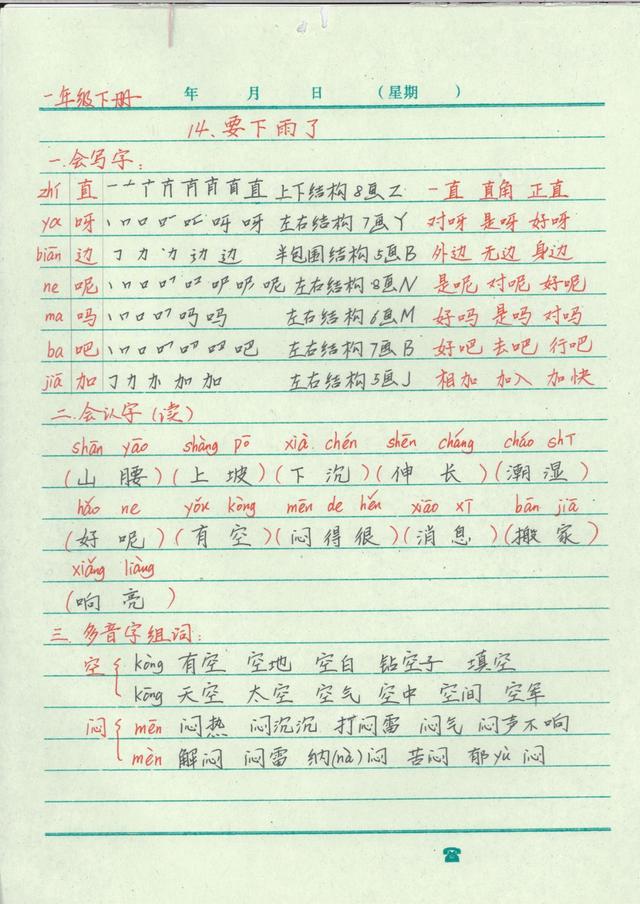 一年级下册 年 月 日 (星期 )
14、要下雨了
一.会写字:
zhí 直 上下结构 8画 Z 一直 直角 正直
ya 呀 左右结构 7画 Y 对呀 是呀 好呀
biān 边 半包围结构 5画 B 外边 无边 身边
ne 呢 左右结构 8画 N 是呢 对呢 好呢
ma 吗 左右结构 6画 M 好吗 是吗 对吗
ba 吧 左右结构 7画 B 好吧 去吧 行吧
jiā 加 左右结构 5画 J 相加 加入 加快
二.会认字(读)
shān yāo shàng pō xià chén shēn cháng cháo shī
(山 腰)(上 坡)(下 沉)(伸 长)(潮 湿)
hǎo ne yǒu kòng mēn de hěn xiāo xī bān jiā
(好 呢)(有 空)(闷 得 很)(消 息)(搬 家)
xiǎng liàng
(响 亮 )
三.多音字组词:
空 kòng 有空 空地 空白 钻空子 填空
kōng 天空 太空 空气 空中 空间 空军
闷 mēn 闷热 闷沉沉 打闷雷 闷气 闷声不响
mèn 解闷 闷雷 纳(nà)闷 苦闷 郁yù 闷